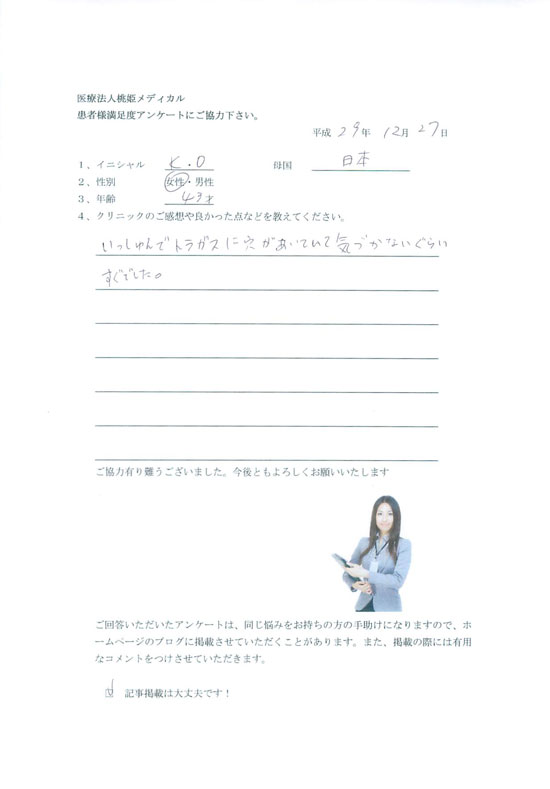 医療法人桃姫メディカル
患者様満足度アンケートにご協力下さい。
平成 29年 12月 27日
1、イニシャル K.O 母国 日本
2、性別 女性・男性
3、年齢 43才
4、クリニックのご感想や良かった点などを教えてください。
いっしゅんでトラガスに穴があいていて気づかないぐらい
すぐでした。
ご協力有り難うございました。今後ともよろしくお願いいたします
ご回答いただいたアンケートは、同じ悩みをお持ちの方の手助けになりますので、ホ
ームページのブログに掲載させていただくことがあります。また、掲載の際には有用
なコメントをつけさせていただきます。
☑ 記事掲載は大丈夫です！